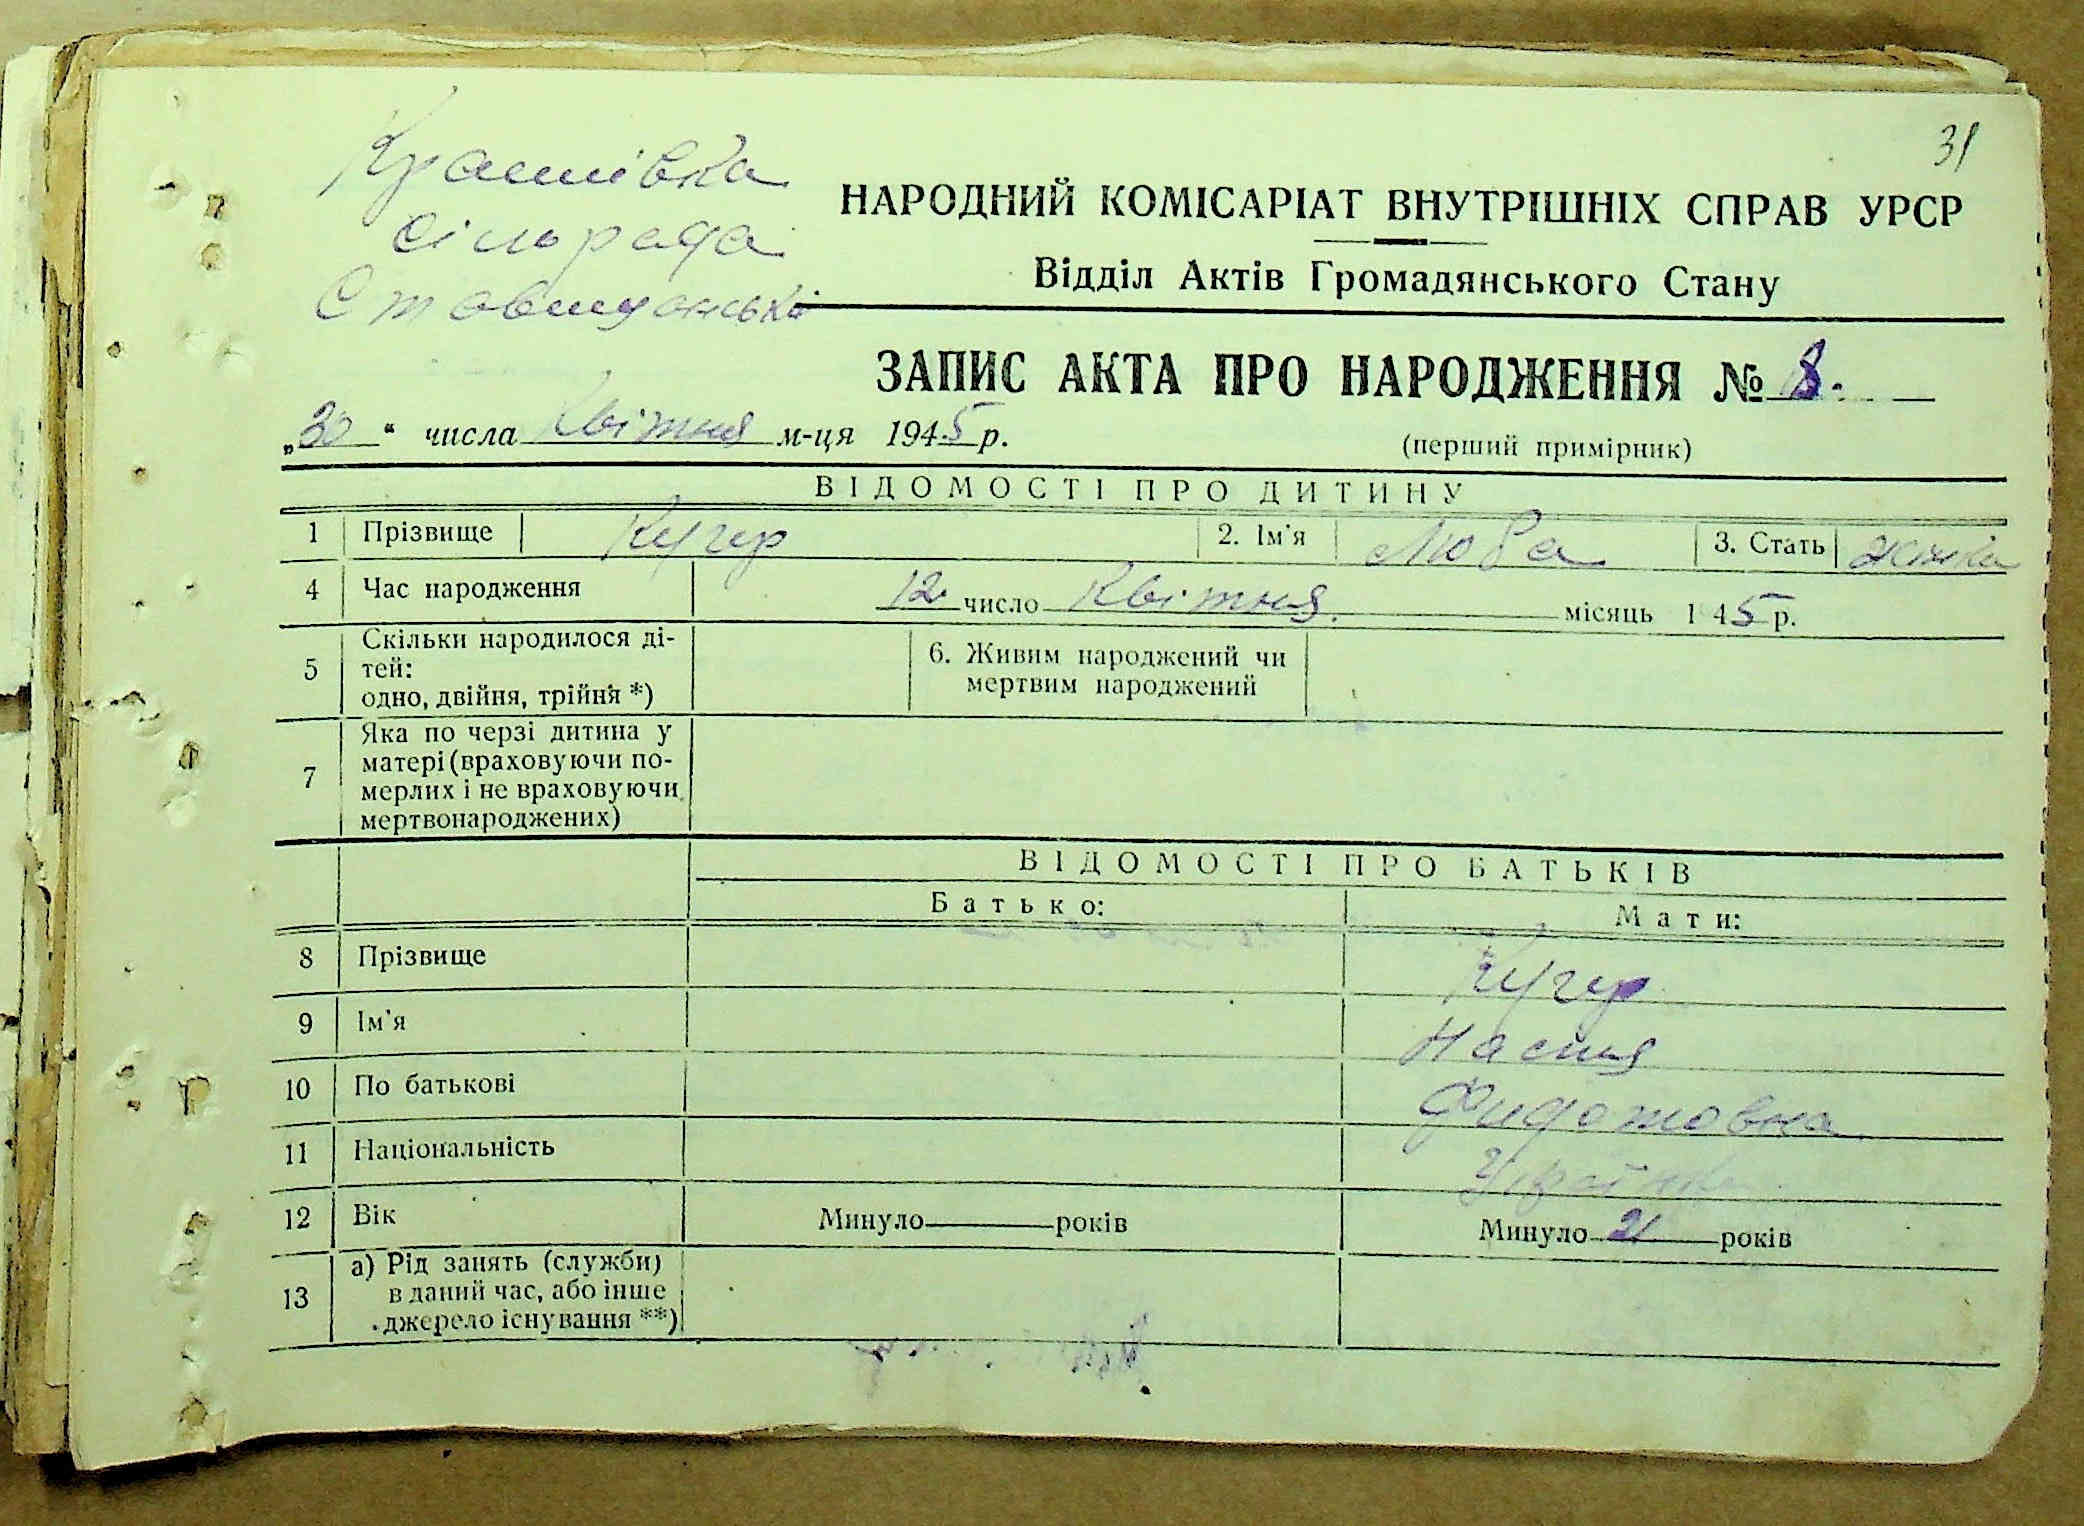 31
Крашівка
сільрада
НАРОДНИЙ КОМІСАРІАТ ВНУТРІШНІХ СПРАВ УРСР
Відділ Актів Громадянського Стану
ЗАПИС АКТА ПРО НАРОДЖЕННЯ № 8.
„30“ числа Квітня м-ця 1945 р.
(перший примірник)
ВІДОМОСТІ ПРО ДИТИНУ
1 Прізвище Кугер 2. Ім'я Люба 3. Стать жінка
4 Час народження 12 число Квітня місяць 1 45 р.
5 Скільки народилося ді-
тей:
одно, двійня, трійня *)
6. Живим народжений чи
мертвим народжений
7 Яка по черзі дитина у
матері (враховуючи по-
мерлих і не враховуючи
мертвонароджених)
ВІДОМОСТІ ПРО БАТЬКІВ
Батько: Мати:
8 Прізвище Кугер
9 Ім'я Настя
10 По батькові Фидотовна
11 Національність Українка
12 Вік Минуло років Минуло 21 років
13 а) Рід занять (служби)
в даний час, або інше
джерело існування **)